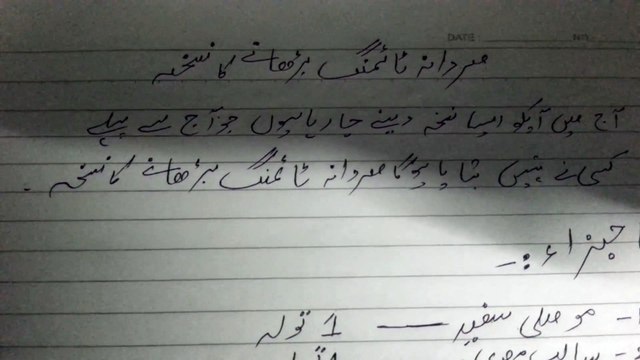 DATE NO.
مردانہ ٹائمنگ بڑھانے کا نسخہ
آج میں آپکو ایسا نسخہ دینے جا رہا ہوں جو آج سے پہلے
کسی نے نہیں بتایا ہوگا مردانہ ٹائمنگ بڑھانے کا نسخہ -
اجزاء :-
1- موصلی سفید — 1 تولہ